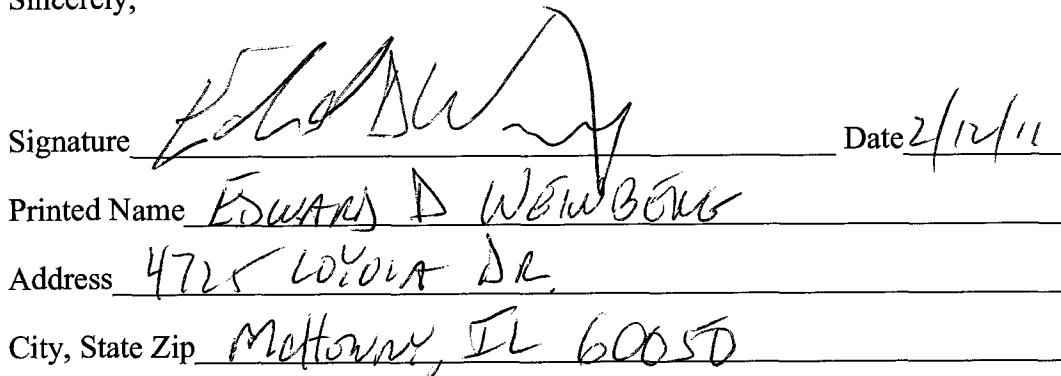 Sincerely,
Signature Edward D Weinberg Date 2/12/11
Printed Name EDWARD D WEINBERG
Address 4725 LOYOLA DR.
City, State Zip McHenry, IL 60050